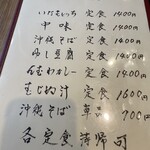 いためもつ 定食 1400円
中味 定食 1400円
沖縄そば 定食 1400円
ゆし豆腐 定食 1400円
定食 1400円
もずぬ汁 定食 1600円
沖縄そば 単品 700円
各定食 持帰可